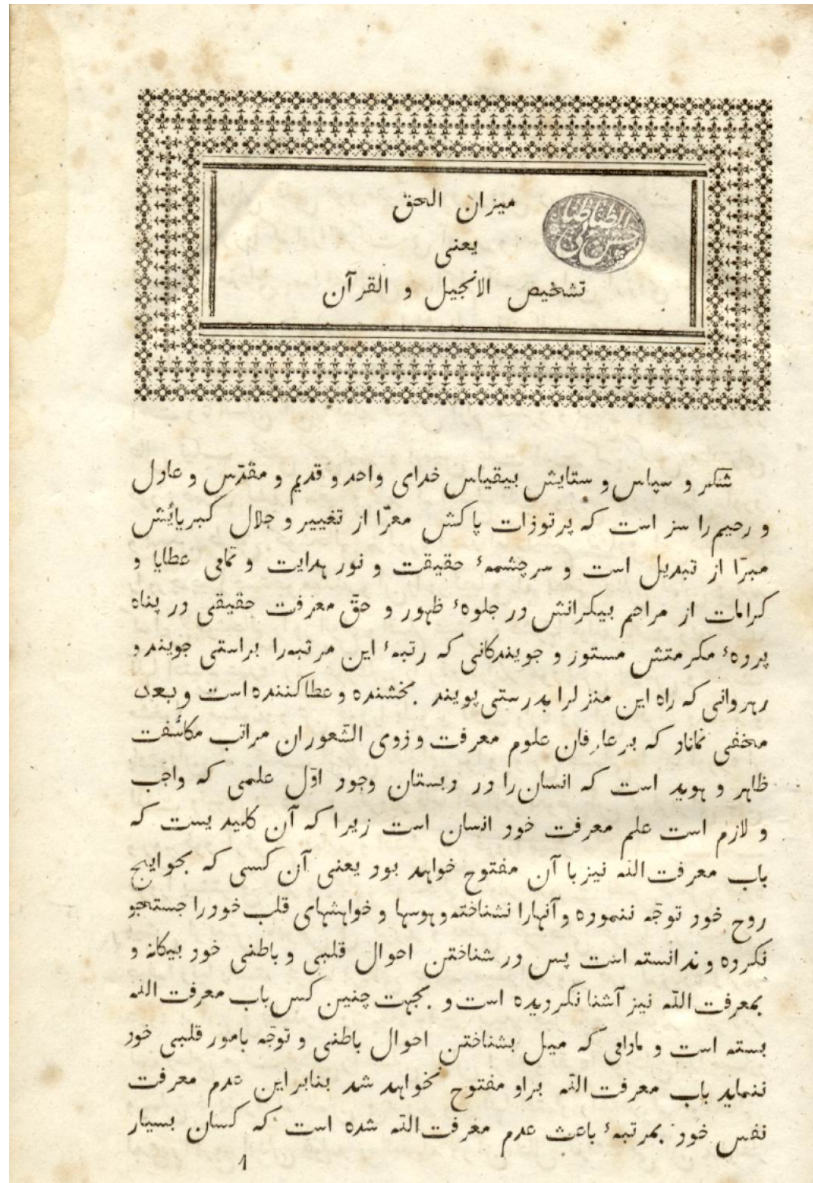 ميزان الحق
يعنى
تشخيص الانجيل و القرآن
شكر و سپاس و ستايش بيقياس خداى واحد و قديم و مقدّس و عادل
و رحيم را سز است كه پرتوذات پاكش معرّا از تغيير و جلال كبريائش
مبرّا از تبديل است و سرچشمهٔ حقيقت و نور هدايت و تمامى عطايا و
كرامات از مراحم بيكرانش در جلوهٔ ظهور و حق معرفت حقيقى در پناه
پردهٔ مكرمتش مستور و جويندكانى كه رتبهٔ اين مرتبه‌را براستى جويند و
رهروانى كه راه اين منزلرا بدرستى پويند بخشنده و عطاكننده است و بعد
مخفى نماناد كه بر عارفان علوم معرفت و ذوى الشعوران مراتب مكاشفت
ظاهر و هويد است كه انسان‌را در دبستان وجود اوّل علمى كه واجب
و لازم است علم معرفت خود انسان است زيرا كه آن كليد يست كه
باب معرفت‌الله نيز با آن مفتوح خواهد بود يعنى آن كسى كه بحوايج
روح خود توجّه ننموده و آنهارا نشناخته و هوسها و خواهشهاى قلب خودرا جستجو
نكرده و ندانسته است پس در شناختن احوال قلبى و باطنى خود بيكانه و
بمعرفت‌الله نيز آشنا نكرديده است و بجهت چنين كس باب معرفت‌الله
بسته است و مادامى كه ميل بشناختن احوال باطنى و توجّه بامور قلبى خود
ننمايد باب معرفت‌الله براو مفتوح نخواهد شد بنابراين عدم معرفت
نفس خود بمرتبهٔ باعث عدم معرفت‌الله شده است كه كسان بسيار
1